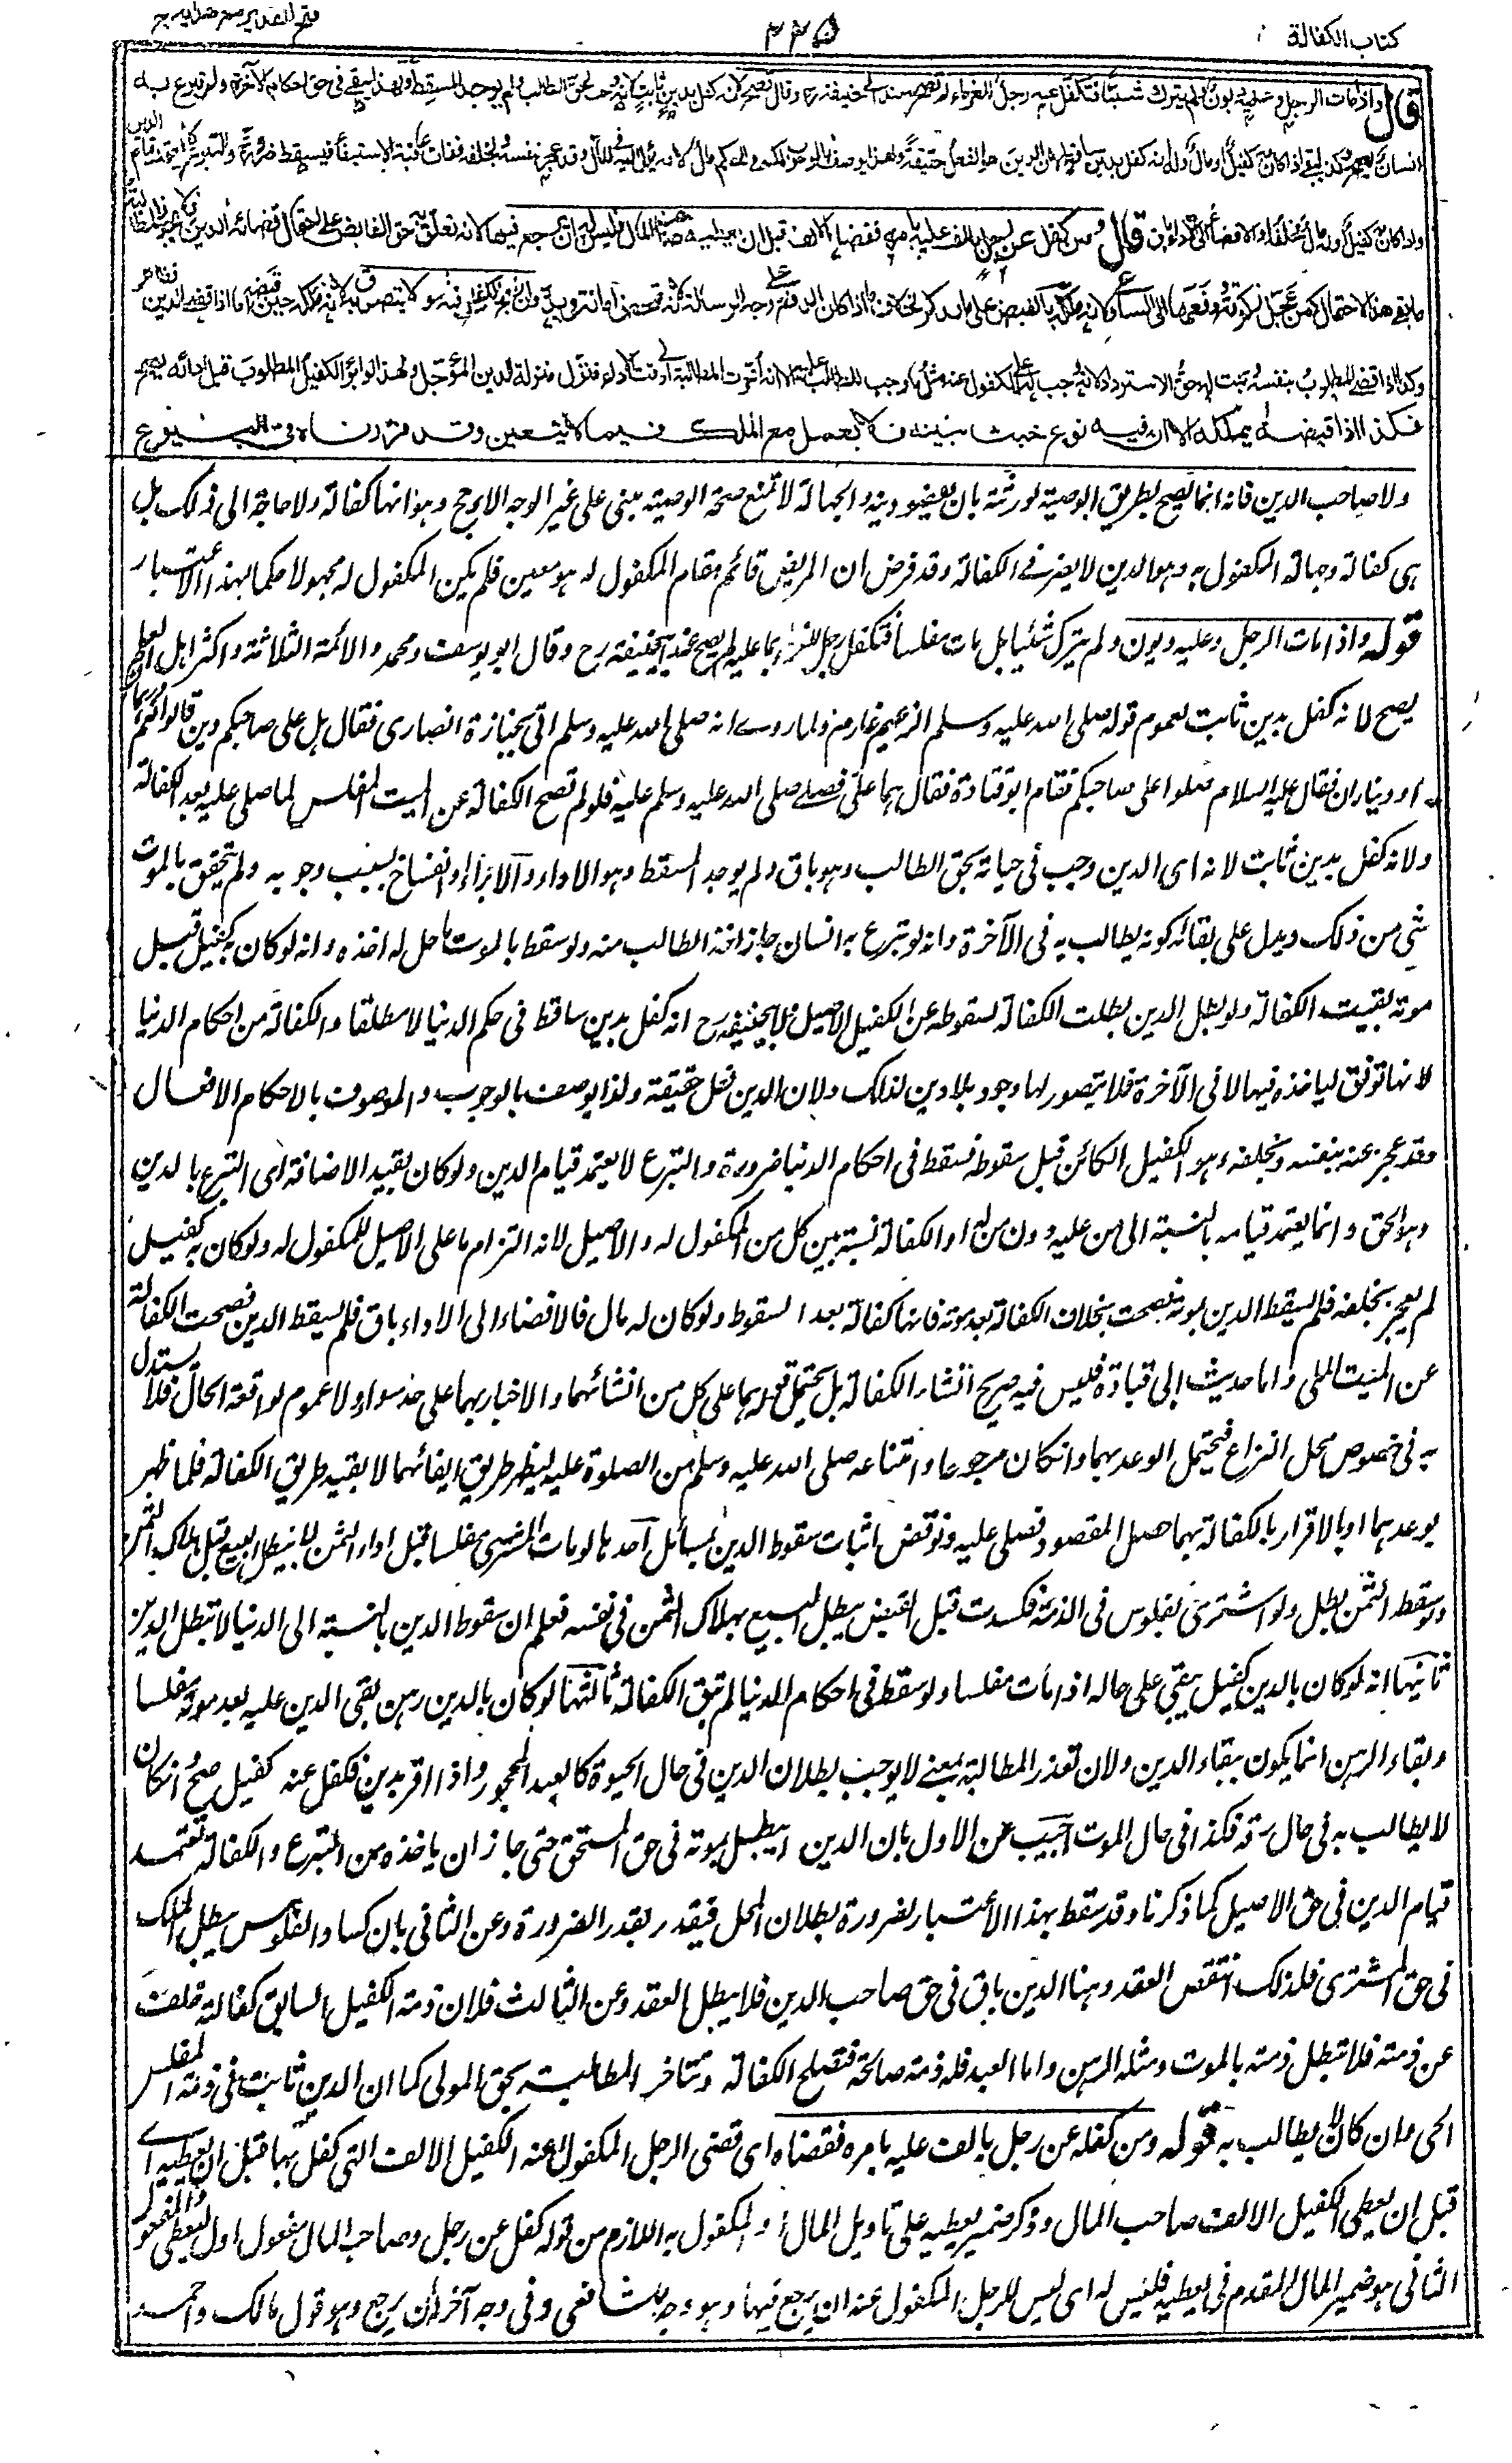 كتاب الكفالة
٣٣٥
فتح القدير مع هدايه ج
قال واذا مات الرجل وعليه ديون ولم يترك شيئا فتكفل عنه رجل للغرماء لم تصح عند ابي حنيفة رح وقالا تصح لانه كفل بدين ثابت لانه وجب لحق الطالب ولم يوجد المسقط ولهذا يبقى فى حق احكام الآخرة ولو تبرع به
انسان يصح وكذا يبقى اذا كان به كفيل او مال وله انه كفل بدين ساقط لان الدين هو الفعل حقيقة ولهذا يوصف بالوجوب لكنه فى الحكم مال لانه يؤل اليه فى المآل وقد عجز بنفسه وبخلفه ففات عاقبة الاستيفاء فيسقط ضرورة والتبرع لا يعتمد قيام الدين
واذا كان به كفيل او له مال فخلفه او الافضاء الى الاداء باق قال ومن كفل عن رجل بالف عليه بامره فقضاه الالف قبل ان يعطيه صاحب المال فليس له ان يرجع فيها لانه تعلق به حق القابض على احتمال قضائه الدين فلا يجوز المطالبة
ما بقى هذا الاحتمال كمن عجل زكوته ودفعها الى الساعي ولانه ملكه بالقبض على ما نذكر بخلاف ما اذا كان الدفع على وجه الرسالة لانه تمحض امانة فى يده وان ربح الكفيل فيه فهو له لا يتصدق به لانه ملكه حين قبضه اما اذا قضى الدين فظاهر
وكذا اذا قضى المطلوب بنفسه وثبت له حق الاسترداد لانه وجب له على المكفول عنه مثل ما وجب للطالب عليه الا انه اخرت المطالبة الى وقت الاداء فنزل منزلة الدين المؤجل ولهذا لو ابرأ الكفيل المطلوب قبل ادائه يصح
فكذا اذا قبضه يملكه الا ان فيه نوع خبث نبينه فلا يعمل مع الملك فيما لا يتعين وقد قررناه فى البيوع
ولا صاحب الدين فانه انما يصح بطريق الوصية لورثته بان يقضوا دينه والجهالة لا تمنع صحة الوصية مبنى على غير الوجه الاوجح وهو انها كفالة ولا حاجة الى ذلك بل
هى كفالة وجهالة المكفول به وهو الدين لا يضر فى الكفالة وقد فرض ان المريض قائم مقام المكفول له هو معين فلم يكن المكفول له مجهولا حكما بهذا الاعتبار
قوله واذا مات الرجل وعليه ديون ولم يترك شيئا بل مات مفلسا فتكفل رجل للغرماء بما عليه لم يصح عند ابيحنيفة رح وقال ابو يوسف ومحمد والائمة الثلاثة واكثر اهل العلم
يصح لانه كفل بدين ثابت لعموم قوله صلى الله عليه وسلم الزعيم غارم ولما روے انه صلى الله عليه وسلم اتى بجنازة انصارى فقال هل على صاحبكم دين قالوا نعم درهمان
او ديناران فقال عليه السلام صلوا على صاحبكم فقام ابو قتادة فقال هما على فصلے صلى الله عليه وسلم عليه فلو لم تصح الكفالة عن الميت المفلس لما صلى عليه بعد الكفالة
ولانه كفل بدين ثابت لانه اى الدين وجب فى حياته بحق الطالب وهو باق ولم يوجد المسقط وهو الاداء والابراء وانفساخ سبب وجوبه ولم يتحقق بالموت
شئ من ذلك ويدل على بقائه كونه يطالب به فى الآخرة وانه لو تبرع به انسان جاز اخذ الطالب منه ولو سقط بالموت ما حل له اخذه وانه لو كان به كفيل قبل
موته بقيت الكفالة ولو بطل الدين بطلت الكفالة لسقوطه عن الكفيل الاصيل ولابيحنيفة رح انه كفل بدين ساقط فى حكم الدنيا لا مطلقا والكفالة من احكام الدنيا
لانها توثق لياخذه فيها لا فى الآخرة فلا يتصور لها وجود بلا دين لذلك ولان الدين فعل حقيقة ولذا يوصف بالوجوب والموصوف بالاحكام الافعال
وقد عجز عنه بنفسه وبخلفه وهو الكفيل الكائن قبل سقوطه فسقط فى احكام الدنيا ضرورة والتبرع لا يعتمد قيام الدين ولو كان بقيد الاضافة اى التبرع بالدين
وهو الحق وانما يعتمد قيامه بالنسبة الى من عليه دون من له او الكفالة نسبة بين كل من المكفول له والاصيل لانه التزام ما على الاصيل للمكفول له ولو كان به كفيل
لم يعجز بخلفه فلم يسقط الدين بموته فصحت بخلاف الكفالة بعد موته فانها كفالة بعد السقوط ولو كان له مال فالافضاء الى الاداء باق فلم يسقط الدين فصحت الكفالة
عن الميت الملى واما حديث ابى قتادة فليس فيه صريح انشاء الكفالة بل يحتمل قوله هما على كل من انشائهما والاخبار بهما على حد سواء ولا عموم لواقعة الحال فلا يستدل
به فى خصوص محل النزاع فيحتمل الوعد بهما وان كان مرجوحا وامتناعه صلى الله عليه وسلم من الصلوة عليه ليظهر طريق ايفائهما لا بقيد طريق الكفالة فلما ظهر
بوعدهما او بالاقرار بالكفالة بهما حصل المقصود فصلى عليه ونوقض اثبات سقوط الدين بمسائل احدها لو مات المشترى مفلسا قبل اداء الثمن لا يبطل البيع قبل هلاك الثمن
ولو سقط الثمن بطل ولو اشترى بفلوس فى الذمة فكسدت قبل القبض يبطل البيع بهلاك الثمن فى نفسه فعلم ان سقوط الدين بالنسبة الى الدنيا لا تبطل الدين
ثانيها انه لو كان بالدين كفيل يبقى على حاله اذا مات مفلسا ولو سقط فى احكام الدنيا لم تبق الكفالة ثالثها لو كان بالدين رهن بقى الدين عليه بعد موته مفلسا
وبقاء الرهن انما يكون ببقاء الدين ولان تعذر المطالبة بمعنے لا يوجب بطلان الدين فى حال الحيوة كالعبد المحجور اذا اقر بدين فكفل عنه كفيل صح وان كان
لا يطالب به فى حال رقه فكذا فى حال الموت اجيب عن الاول بان الدين لا يبطل بموته فى حق المستحق حتى جاز ان ياخذه من المتبرع والكفالة تعتمد
قيام الدين فى حق الاصيل كما ذكرنا وقد سقط بهذا الاعتبار لضرورة بطلان المحل فيقدر بقدر الضرورة وعن الثانى بان كساد الفلوس يبطل الملك
فى حق المشترى فلذلك انتقض العقد وهنا الدين باق فى حق صاحب الدين فلا يبطل العقد وعن الثالث فلان ذمة الكفيل السابق كفالته خلفت
عن ذمته فلا تبطل ذمته بالموت ومثله الرهن واما العبد فله ذمة صالحة فتصلح الكفالة وتتاخر المطالبة بحق المولى كما ان الدين ثابت فى ذمة المفلس
الحى وان كان لا يطالب به قوله ومن كفله عن رجل بالف عليه بامره فقضاه اى قضى الرجل المكفول عنه الكفيل الالف التى كفل بها قبل ان يعطيه اے
قبل ان يعطى الكفيل الالف صاحب المال وذكر ضمير يعطيه على تاويل المال او المكفول به اللازم من قوله كفل عن رجل وصاحب المال مفعول اول ليعطى والمفعول
الثانى هو ضمير المال المقدم فى يعطيه فليس له اى ليس للرجل المكفول عنه ان يرجع فيها وهو وجه للشافعى وفى وجه آخر له ان يرجع وهو قول مالك واحمد